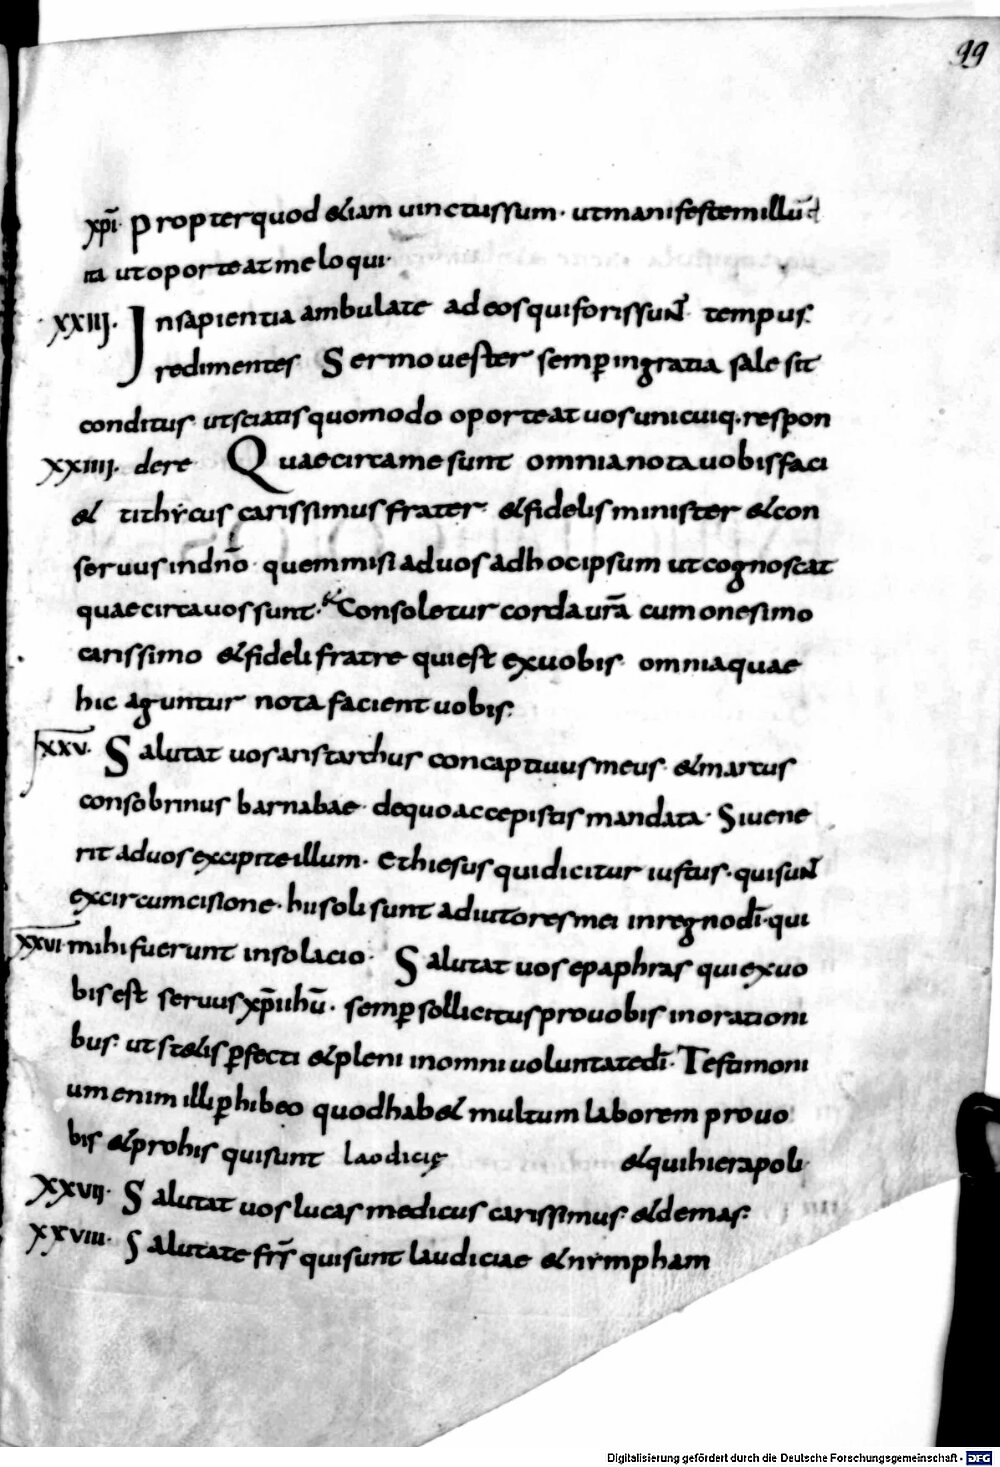 99
xp̄i propter quod etiam uinctus sum· ut manifestem illud
ita ut oporteat me loqui·
XXIII· In sapientia ambulate ad eos qui foris sunt· tempus
redimentes Sermo uester semp̄ in gratia sale sit
conditus ut sciatis quomodo oporteat uos unicuiq· respon
XXIIII· dere Quae circa me sunt omnia nota uobis faci
et tithycus carissimus frater· et fidelis minister et con
seruus in dn̄o· quem misi ad uos ad hoc ipsum ut cognoscat
quae circa uos sunt· et Consoletur corda ur̄a cum onesimo
carissimo et fideli fratre qui est ex uobis· omnia quae
hic aguntur nota facient uobis·
XXV· Salutat uos aristarchus concaptiuus meus· et marcus
consobrinus barnabae· de quo accepistis mandata· Si uene
rit ad uos excipite illum· et hiesus qui dicitur iustus· qui sunt
ex circumcisione· hii soli sunt adiutores mei in regno dī· qui
XXVI· mihi fuerunt in solacio· Salutat uos epaphras qui ex uo
bis est seruus xp̄i ihū· semp̄ sollicitus pro uobis in orationi
bus· ut stetis p̄fecti et pleni in omni uoluntate dī· Testimoni
um enim illi p̄hibeo quod habet multum laborem pro uo
bis et pro his qui sunt laodicię et qui hierapoli·
XXVII· Salutat uos lucas medicus carissimus· et demas·
XXVIII· Salutate fr̄s qui sunt laudiciae et nympham
Digitalisierung gefördert durch die Deutsche Forschungsgemeinschaft - DFG